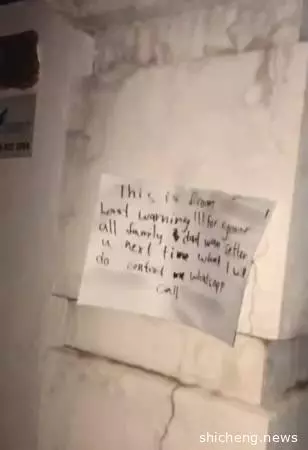 This is from
Last warning !!! for
all family & dad
u next time what I w
do contact me whatsapp
call
shicheng.news